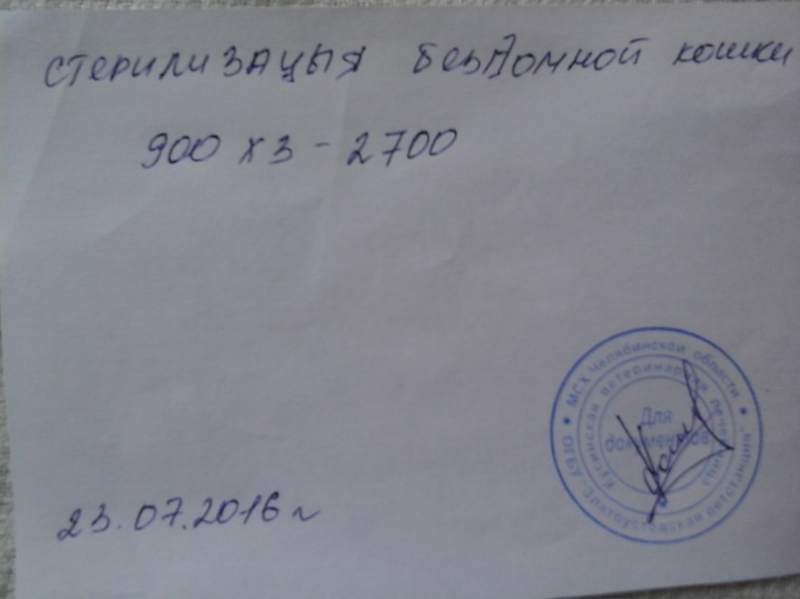 стерилизацыя бездомной кошки
900 х 3 - 2700
МСХ Челябинской области
ОГБУ "Златоустовская ветстанция"
Кусинская ветеринарная лечебница
Для
документов
23.07.2016 г